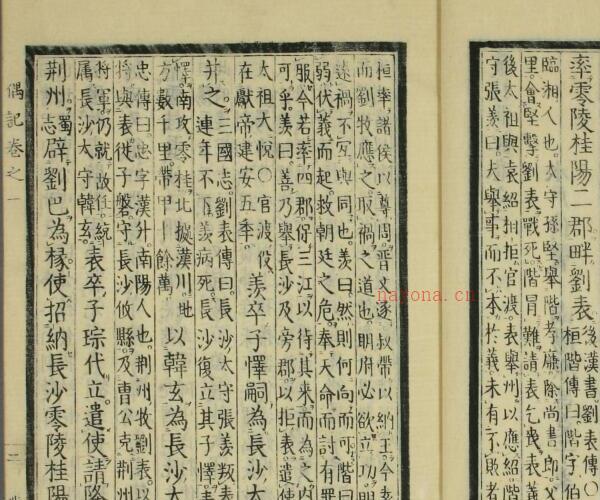 率零陵桂陽二郡畔劉表
後漢書劉表傳○
桓階傳曰階字伯
臨湘人也太守孫堅舉階孝廉除尚書郎父
里會堅擊劉表戰死階冒難請表乞喪表義
後太祖與袁紹相拒官渡表舉州以應紹階
守張羡曰夫舉事而不本於義未有不敗者
桓率諸侯以尊周晉文逐叔帶以納王今袁
而劉牧應之取禍之道也明府必欲立功明
遠禍不宜與同也羡曰然則何向而可階曰
弱伏義而起救朝廷之危奉天命而討有罪
服今若率四郡保三江以待其來而為之内
可乎羡曰善乃舉長沙及旁郡以拒表遣使
太祖大悅○官渡役
在獻帝建安五季
羡卒子懌嗣為長沙太
三國志劉表傳曰長沙太守張羡叛表
并之
連年不下羡病死長沙復立其子懌表
懌南攻零桂北據漢川地
方數千里帶甲十餘萬
以韓玄為長沙太
忠傳曰忠字漢升南陽人也荆州牧劉表以
將與表從子磐守長沙攸縣及曹公克荆州
將軍仍就故任統
屬長沙太守韓玄
表卒子琮代立遣使請降
荆州
蜀志
辟劉巴為掾使招納長沙零陵桂陽
偶記卷之一
二
narona.cn